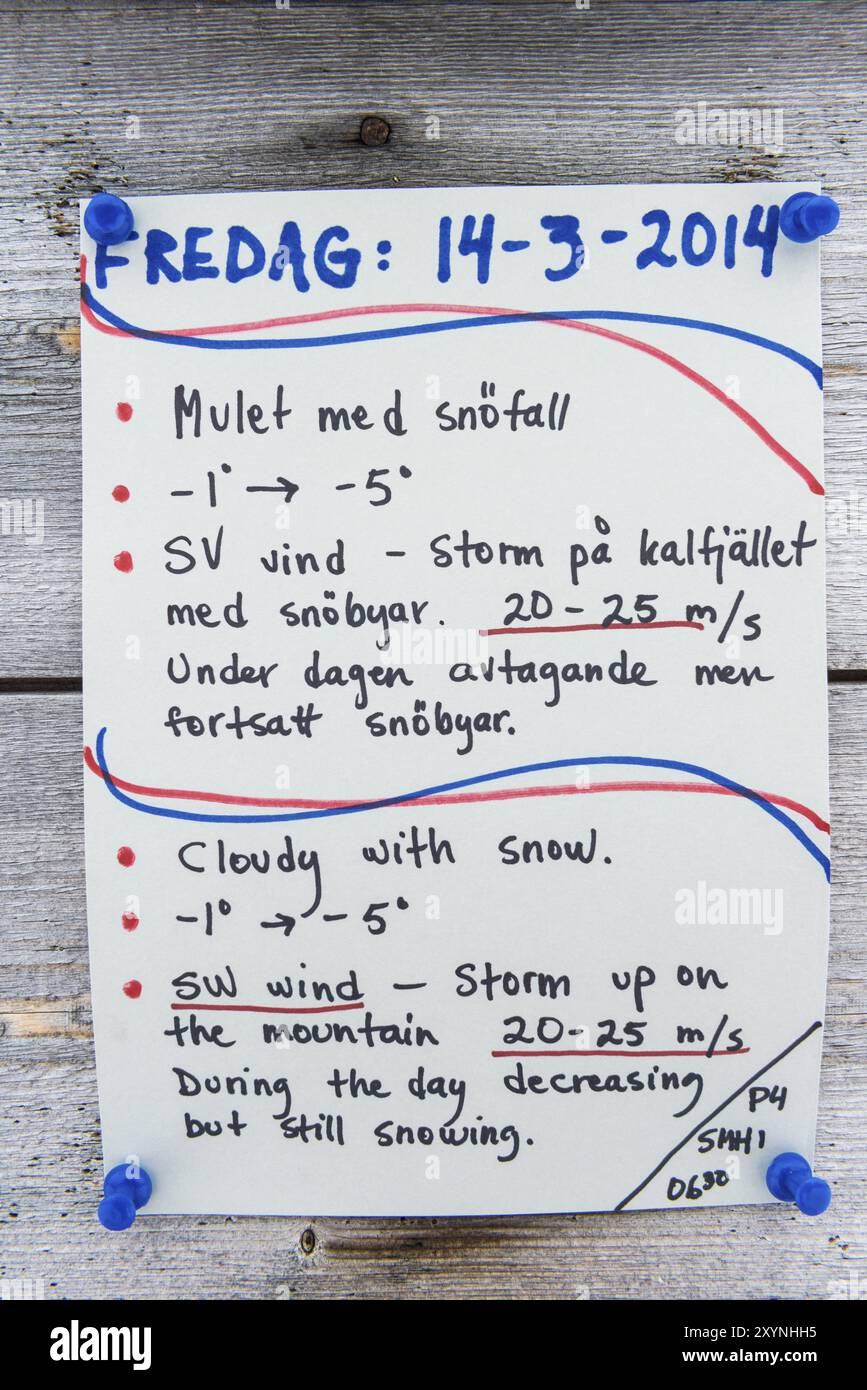 FREDAG: 14-3-2014
• Mulet med snöfall
• -1° → -5°
• SV vind - Storm på kalfjället
med snöbyar. 20-25 m/s
Under dagen avtagande men
fortsatt snöbyar.
• Cloudy with snow.
• -1° → -5°
• SW wind - Storm up on
the mountain 20-25 m/s
During the day decreasing
but still snowing.
P4
SMHI
06³⁰
alamy
Image ID: 2XYNHH5
www.alamy.com